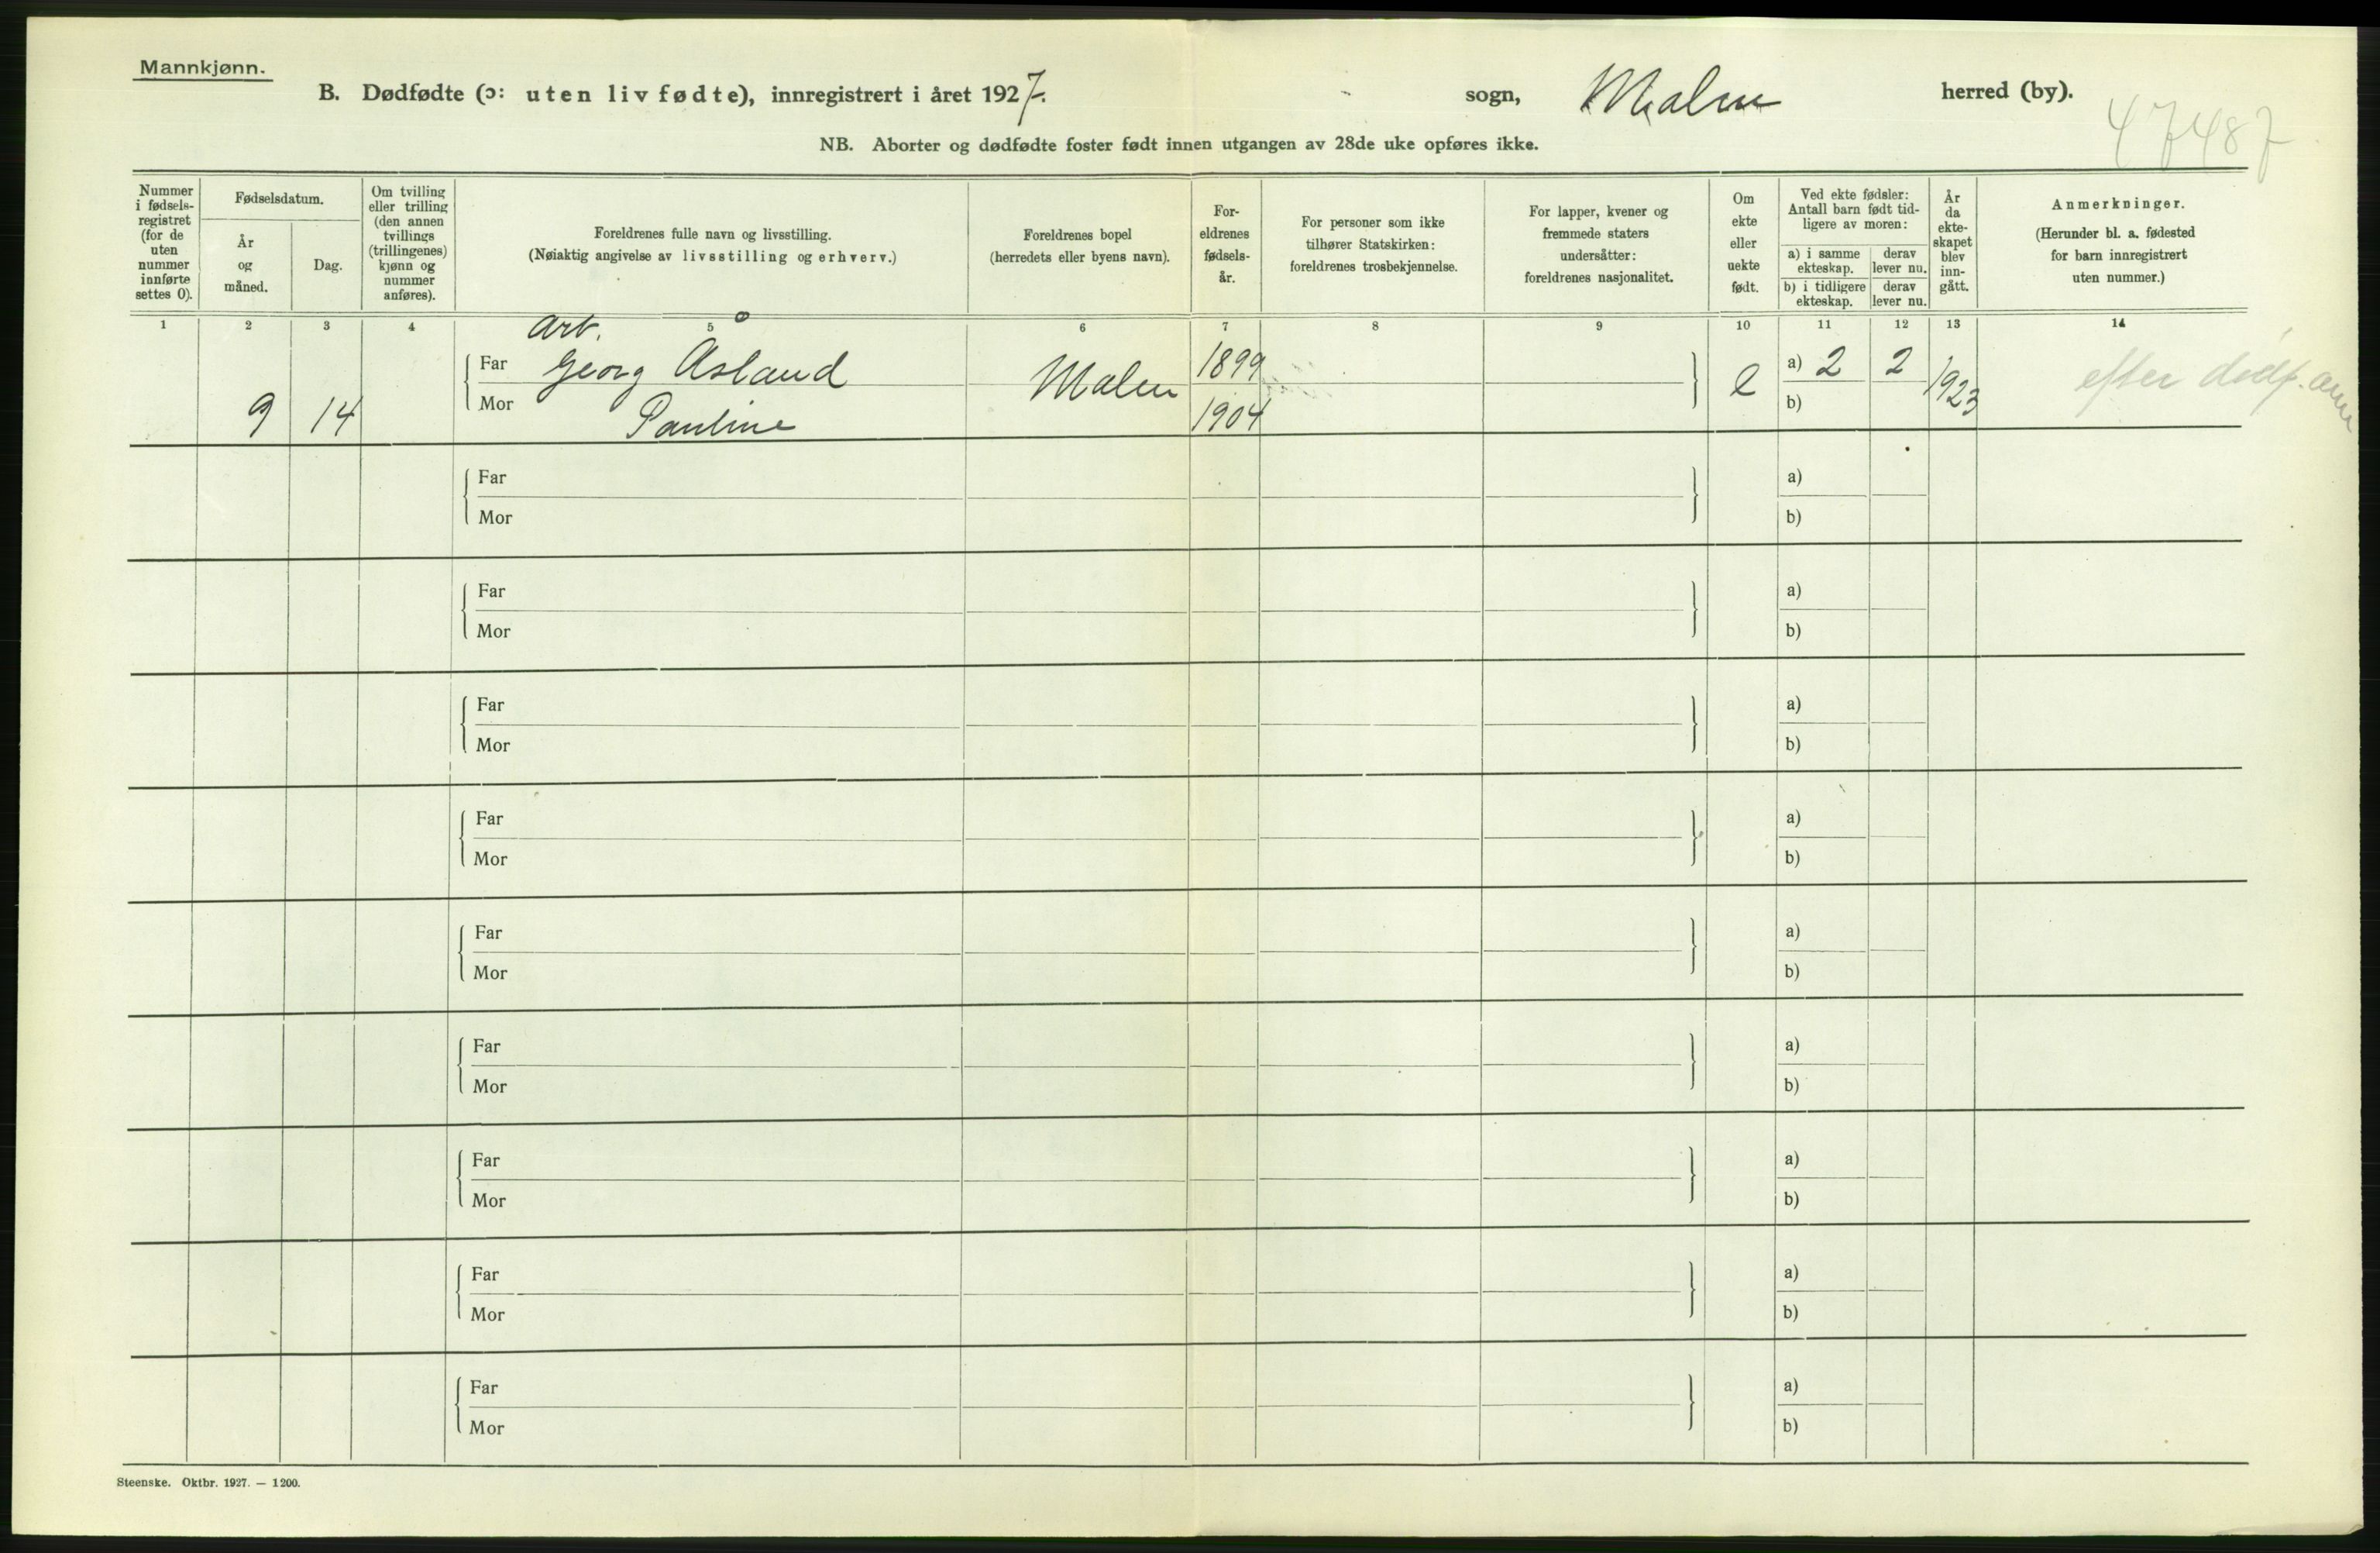 Mannkjønn.
B. Dødfødte (ɔ: uten liv fødte), innregistrert i året 1927. sogn, Malm herred (by).
47487
NB. Aborter og dødfødte foster født innen utgangen av 28de uke opføres ikke.
Nummer i fødselsregistret (for de uten nummer innførte settes 0).
Fødselsdatum.
År og måned.
Dag.
Om tvilling eller trilling (den annen tvillings (trillingenes) kjønn og nummer anføres).
Foreldrenes fulle navn og livsstilling.
(Nøiaktig angivelse av livsstilling og erhverv.)
Foreldrenes bopel
(herredets eller byens navn).
Foreldrenes fødselsår.
For personer som ikke tilhører Statskirken: foreldrenes trosbekjennelse.
For lapper, kvener og fremmede staters undersåtter: foreldrenes nasjonalitet.
Om ekte eller uekte født.
Ved ekte fødsler: Antall barn født tidligere av moren:
a) i samme ekteskap.
derav lever nu.
b) i tidligere ekteskap.
derav lever nu.
År da ekteskapet blev inngått.
Anmerkninger.
(Herunder bl. a. fødested for barn innregistrert uten nummer.)
1 2 3 4 5 6 7 8 9 10 11 12 13 14
arb.
Far Georg Åsland Malm 1899 e a) 2 2 1923 efter dødf. anm
9 14 Mor Pauline 1904 b)
Far a)
Mor b)
Far a)
Mor b)
Far a)
Mor b)
Far a)
Mor b)
Far a)
Mor b)
Far a)
Mor b)
Far a)
Mor b)
Far a)
Mor b)
Far a)
Mor b)
Steenske. Oktbr. 1927. — 1200.